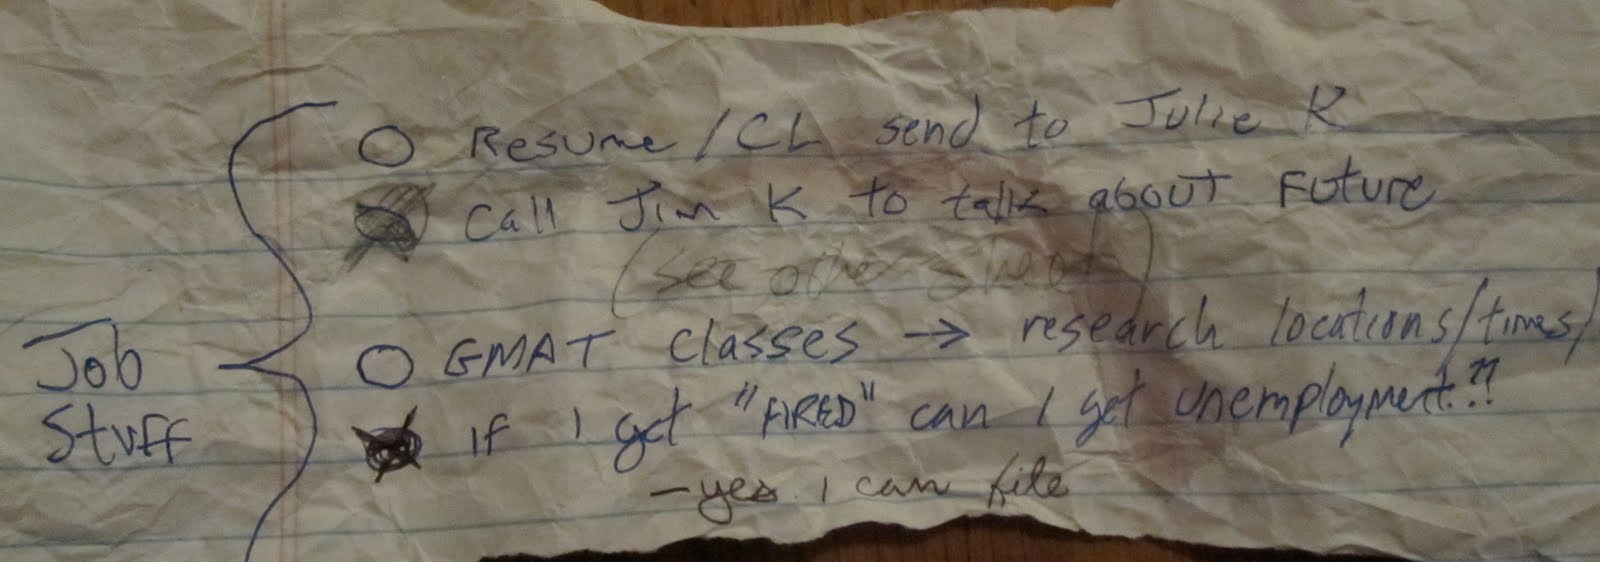 Resume /CL send to Julie K
Call Jim K to talk about Future
(see other sheet)
Job
Stuff
GMAT classes → research locations/times/
If I get "FIRED" can I get unemployment??
- yes I can file